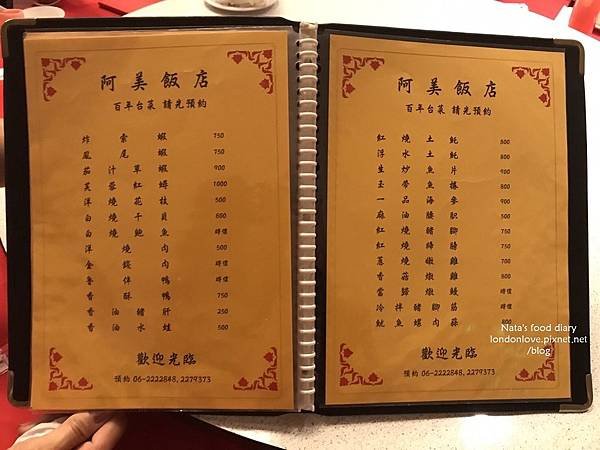 阿美飯店
百年台菜 請先預約
炸索蝦 750
鳳尾蝦 750
茄汁草蝦 900
芙蓉紅蟳 1000
洋燒花枝 500
白燒干貝 600
白燒鮑魚 時價
洋燒肉 500
金錢肉 時價
魯伴鴨 時價
香酥鴨 750
香油豬肝 250
香油水蛙 500
歡迎光臨
預約 06-2222848, 2279373
阿美飯店
百年台菜 請先預約
紅燒土魠 800
浮水土魠 800
生炒魚片
玉帶魚捲
一品海參
麻油腰只
紅燒豬腳
紅燒蹄膀
蔥燒雞
香菇燉雞
當歸燉鰻
冷拌豬腳筋
魷魚螺肉蒜
歡迎光臨
預約 06-2222848, 2279373
Nata's food diary
londonlove.pixnet.net
/blog